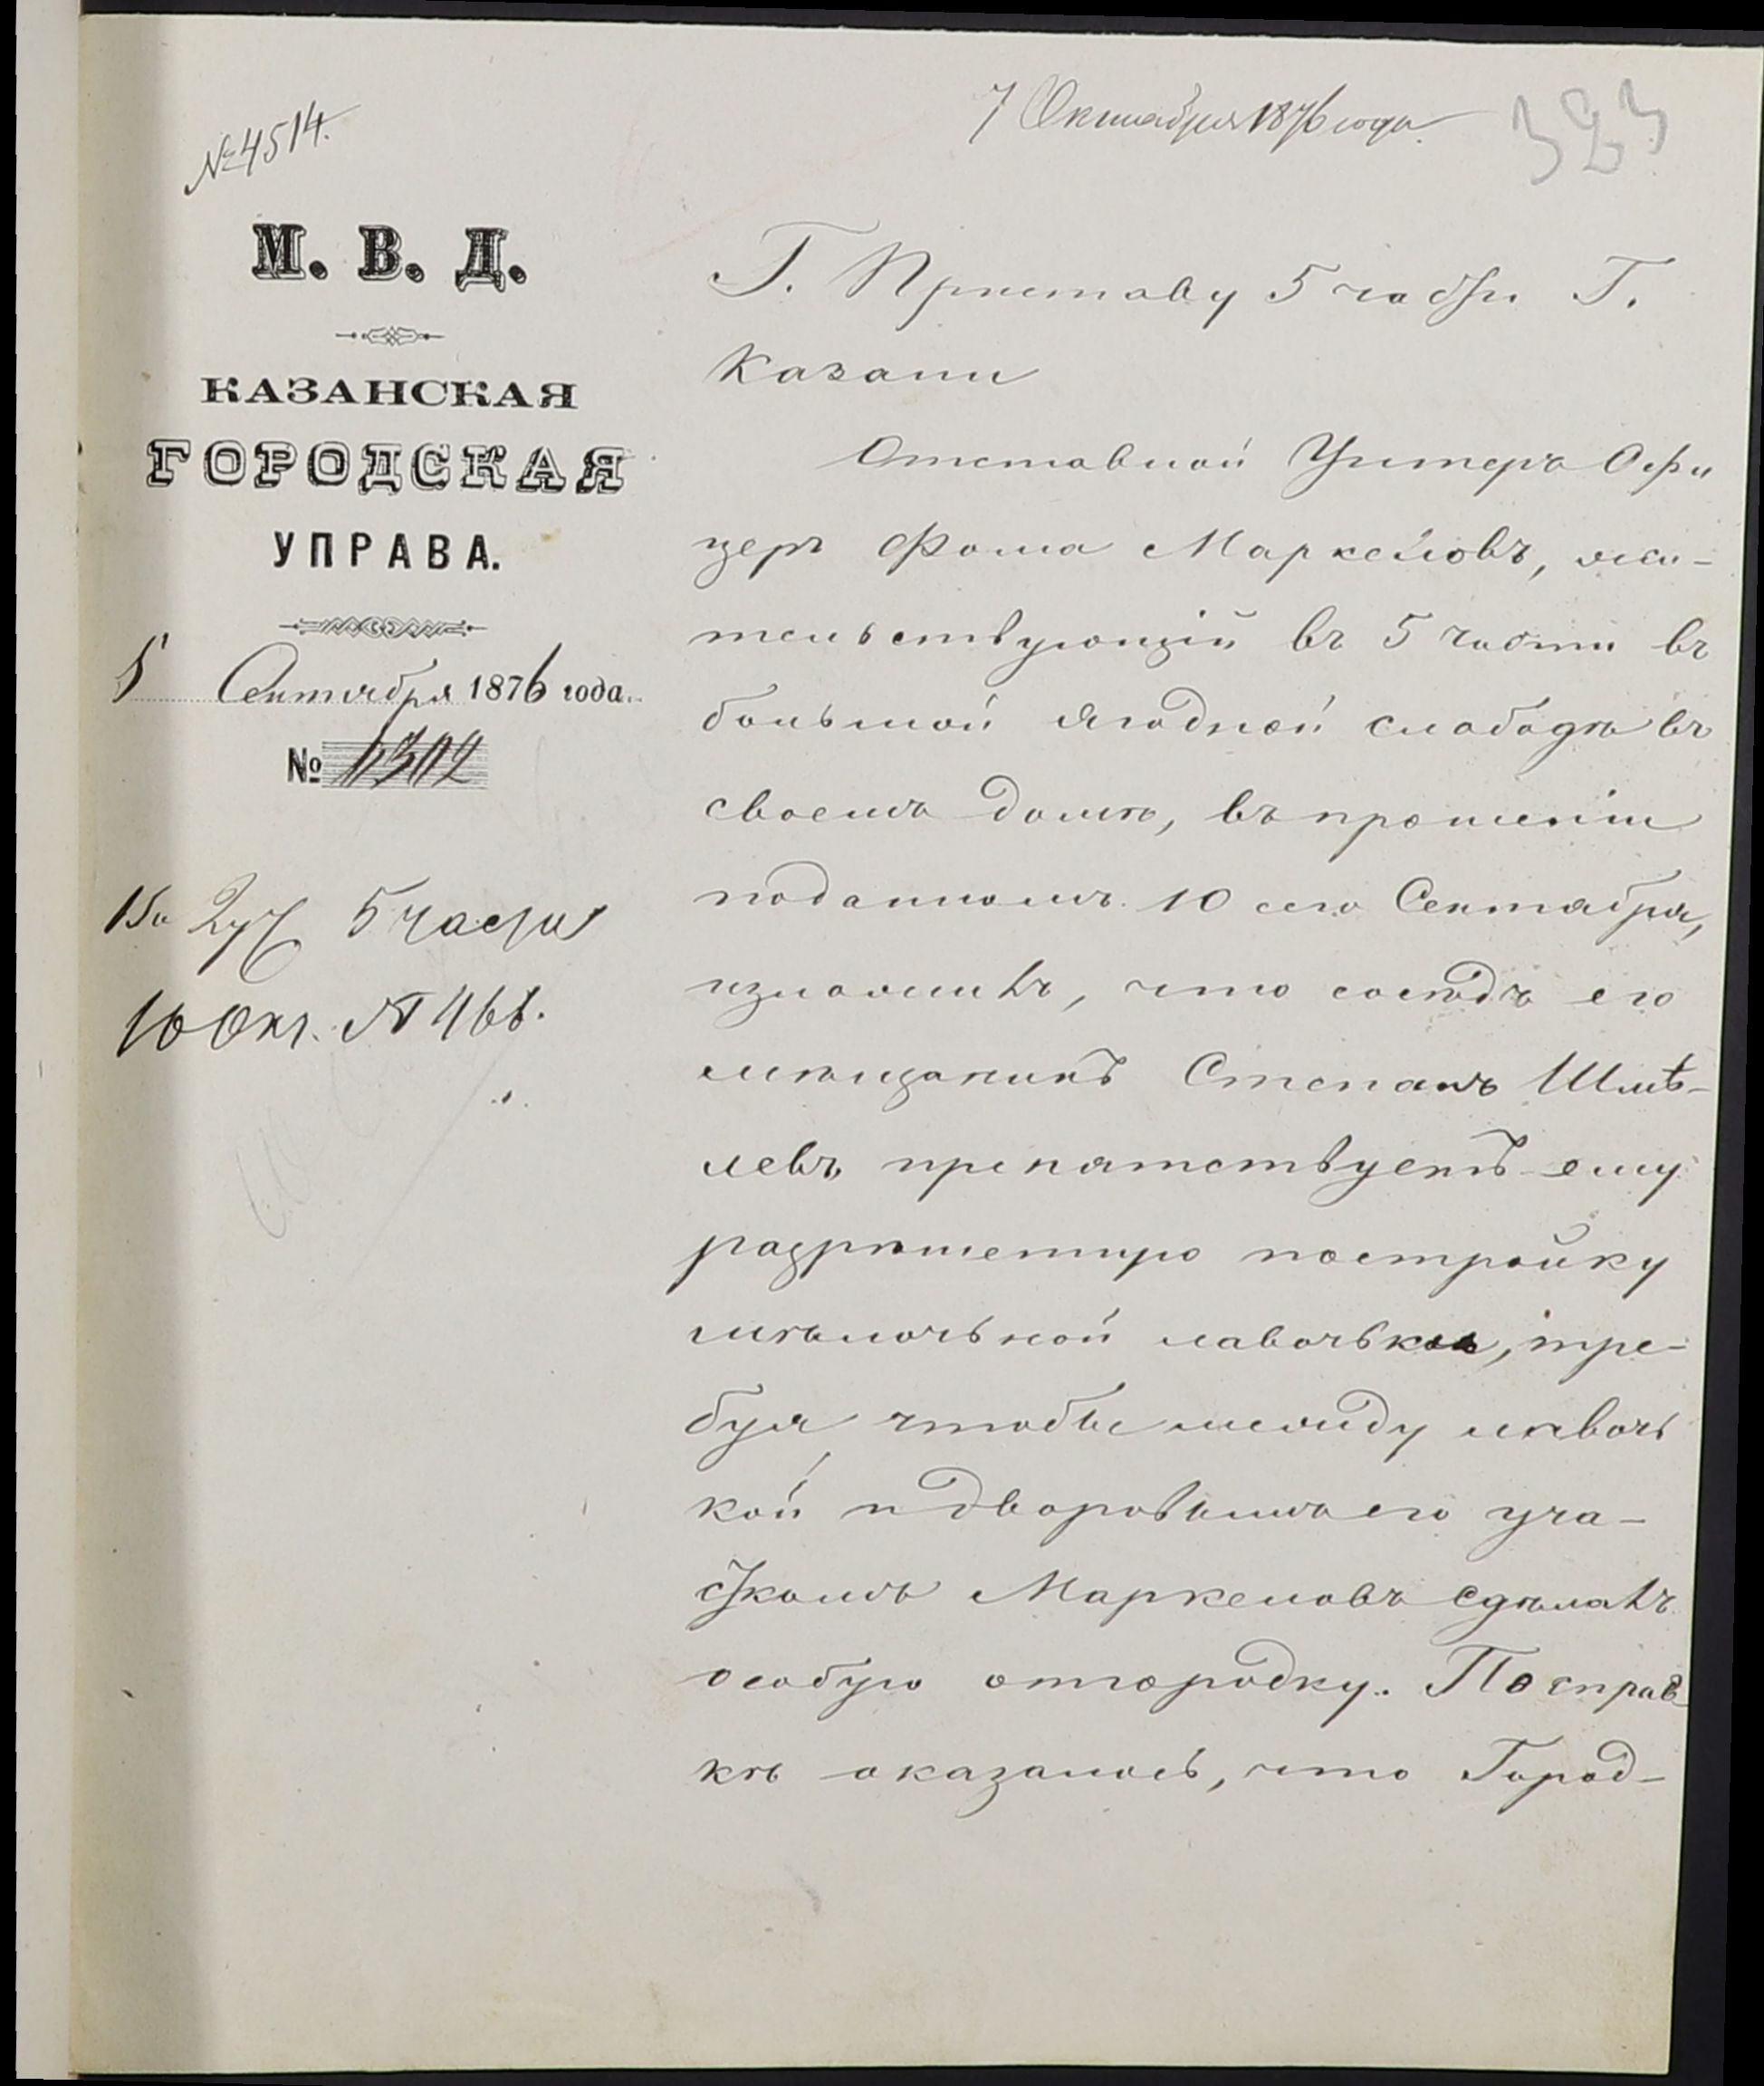 № 4514.
7 Октября 1876 года
323
М. В. Д.
КАЗАНСКАЯ
ГОРОДСКАЯ
УПРАВА.
Сентября 1876 года.
№
2 уч 5 части
10 Окт. № 466.
Г. Приставу 5 части Г.
Казани
Отставной Унтеръ Офи
церъ Фома Маркеловъ, жи-
тельствующій въ 5 части въ
большой Ягодной слободѣ въ
своемъ домѣ, въ прошеніи
поданномъ 10 сего Сентября,
изложилъ, что сосѣдъ его
мѣщанинъ Степанъ Шмѣ-
левъ препятствуетъ ему
разрѣшенную постройку
мѣлочьной лавочьки, тре-
буя чтобы между лавочь
кой и дворовымъ его уча-
сткомъ Маркеловъ сдѣлалъ
особую отгородку. По справ
кѣ оказалось, что Город-